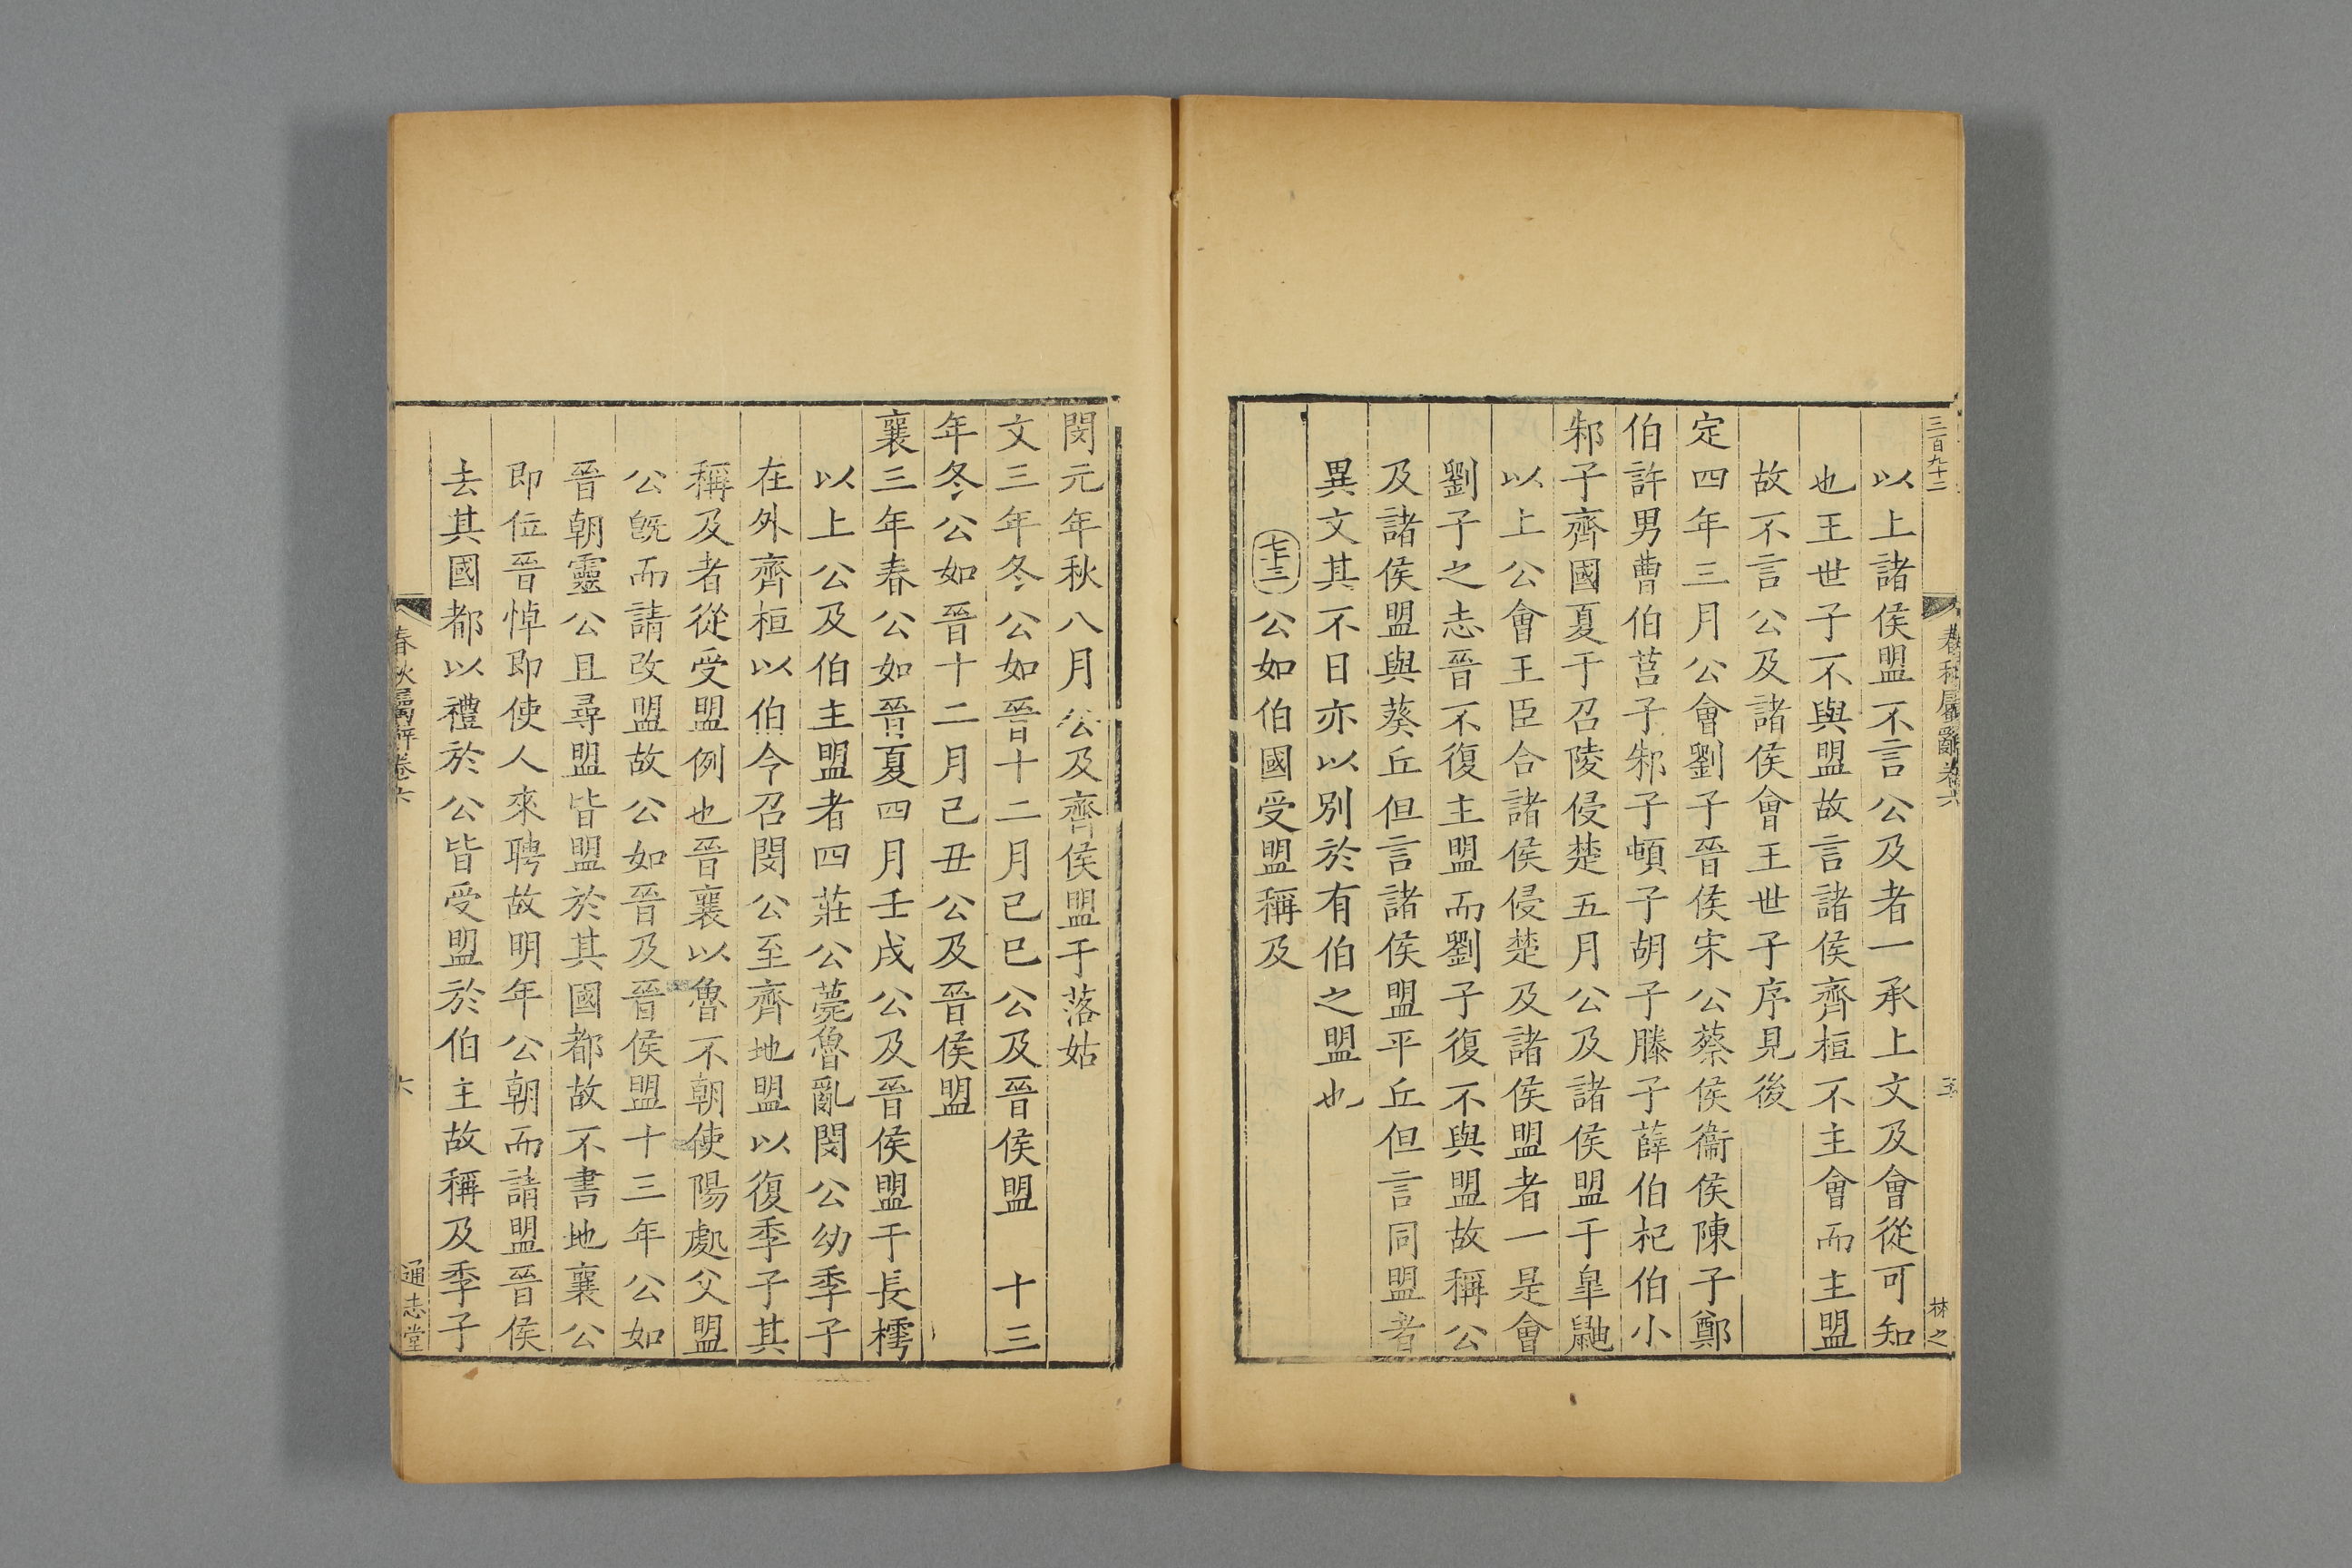 三百九十二
春秋屬辭卷六
五
林之
以上諸侯盟不言公及者一承上文及會從可知
也王世子不與盟故言諸侯齊桓不主會而主盟
故不言公及諸侯會王世子序見後
定四年三月公會劉子晉侯宋公蔡侯衞侯陳子鄭
伯許男曹伯莒子邾子頓子胡子滕子薛伯杞伯小
邾子齊國夏于召陵侵楚五月公及諸侯盟于臯鼬
以上公會王臣合諸侯侵楚及諸侯盟者一是會
劉子之志晉不復主盟而劉子復不與盟故稱公
及諸侯盟與葵丘但言諸侯盟平丘但言同盟者
異文其不日亦以別於有伯之盟也
七十三公如伯國受盟稱及
閔元年秋八月公及齊侯盟于落姑
文三年冬公如晉十二月己巳公及晉侯盟　十三
年冬公如晉十二月己丑公及晉侯盟
襄三年春公如晉夏四月壬戌公及晉侯盟于長樗
以上公及伯主盟者四莊公薨魯亂閔公幼季子
在外齊桓以伯令召閔公至齊地盟以復季子其
稱及者從受盟例也晉襄以魯不朝使陽處父盟
公旣而請改盟故公如晉及晉侯盟十三年公如
晉朝靈公且尋盟皆盟於其國都故不書地襄公
即位晉悼即使人來聘故明年公朝而請盟晉侯
去其國都以禮於公皆受盟於伯主故稱及季子
春秋屬辭卷六
六
通志堂